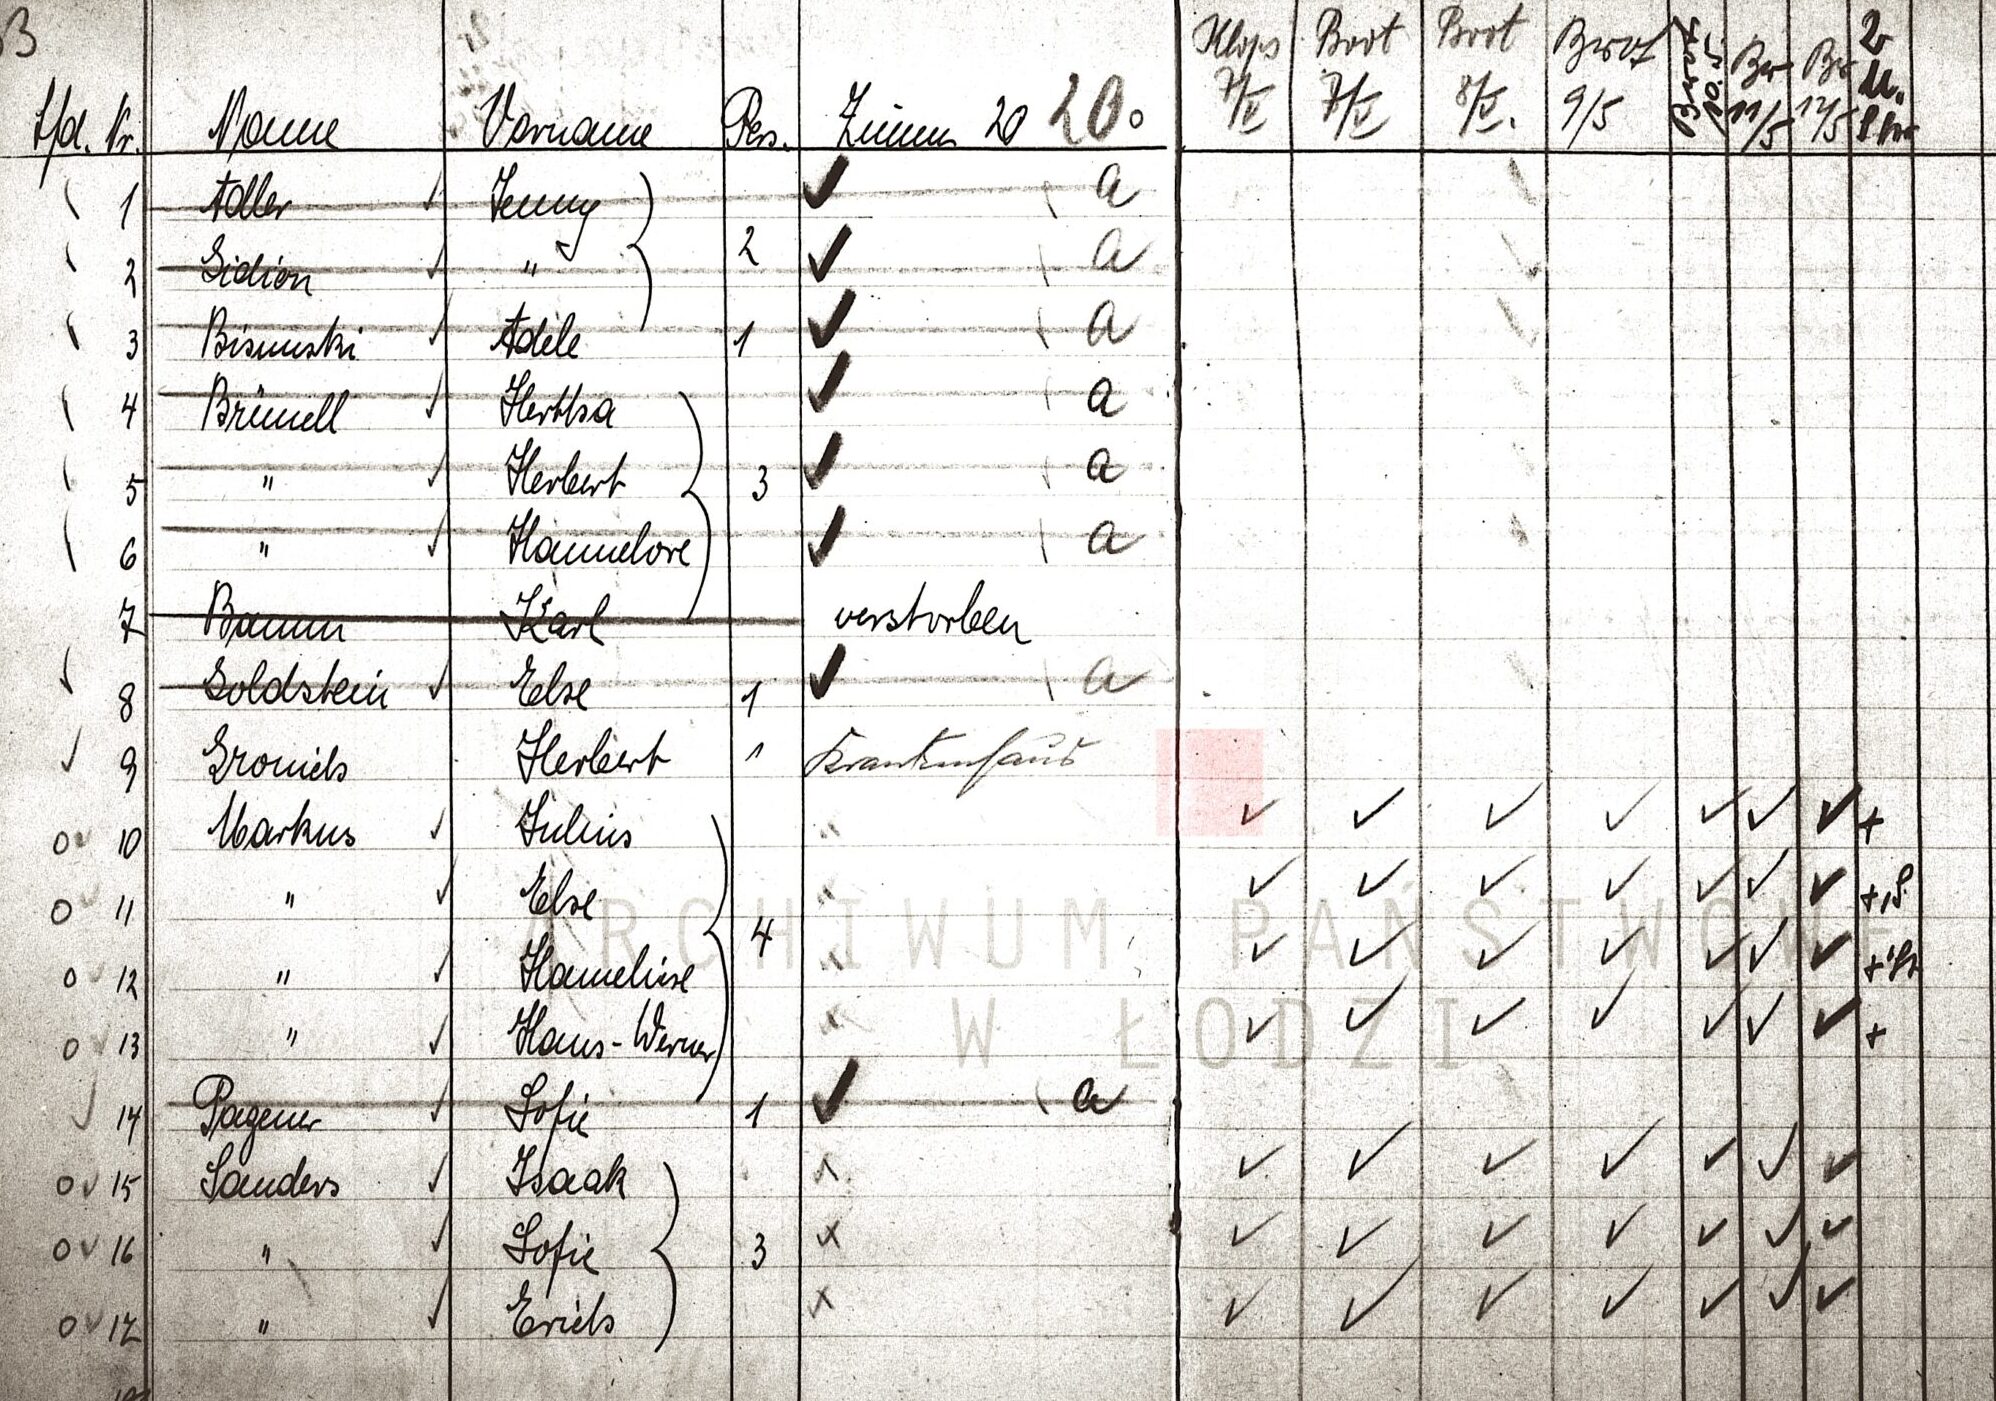 B
Lfd. Nr. Name Vorname Pers. Zimmer 20 20. Klops 7/V Brot 7/V Brot 8/V. Brot 9/5 Brot 10.5. Br 11/5 Br 12/5
1 Adler Jenny a
2 Gidion " 2 a
3 Adele 1 a
4 Brünell Hertha a
5 " Herbert 3 a
6 " Hannelore a
7 Baum Karl verstorben
8 Goldstein Else 1 a
9 Herbert 1 Krankenhaus
10 Markus Julius +
11 " Else 4 +
12 " Hannelise +
13 " Hans-Werner +
14 Pagener Sofie 1 a
15 Sanders Isaak x
16 " Sofie 3 x
17 " Erich x
ARCHIWUM PAŃSTWOWE
W ŁODZI